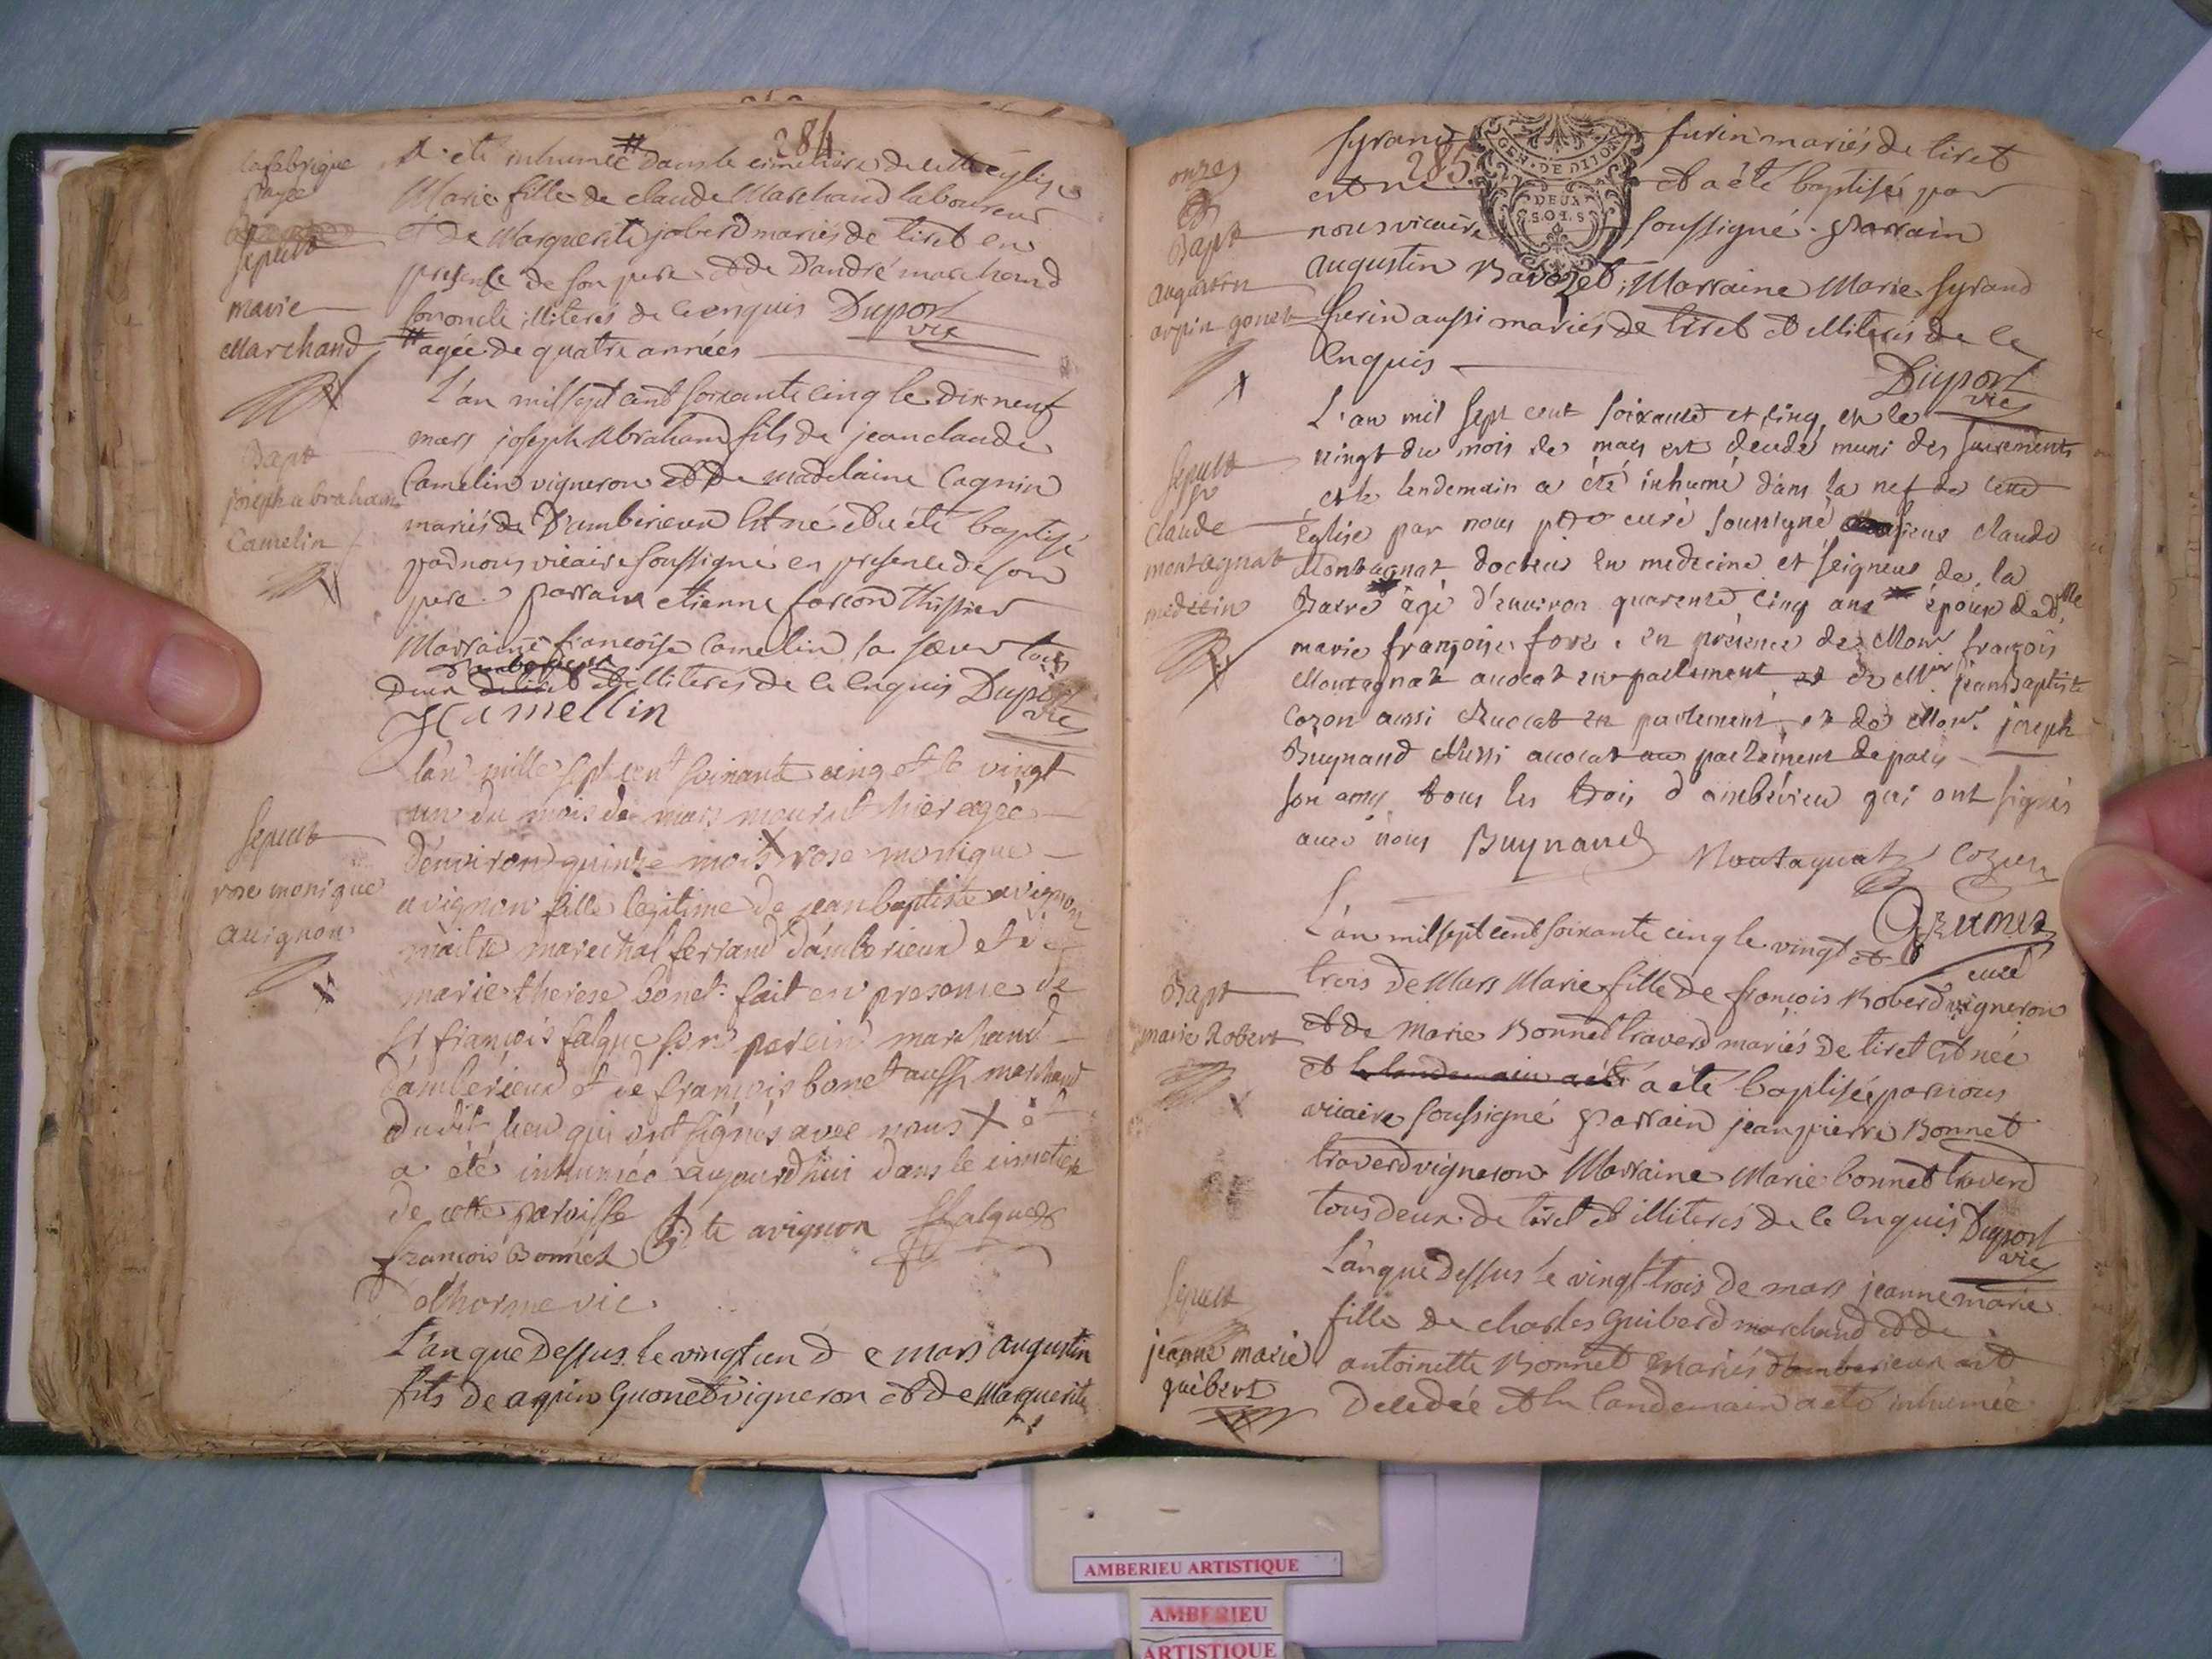 284
la fabrique
payée
Sepult
marie
Marchand
a été inhumée # dans le cimetiere de cette eglise
Marie fille de claude Marchand laboureur
et de Marguerite joberd mariés de tiret en
presence de son pere et de D'andré marchand
son oncle illiterés de ce enquis Duport
vic
# agée de quatre années
Bapt
joseph abraham
Camelin
L'an mil sept cent soixante cinq le dix neuf
mars joseph Abraham fils de jean claude
Camelin vigneron et de Madelaine Cagnin
mariés de D'amberieux est né et a été baptisé
par nous vicaire soussigné en presence de son
pere. Parrain etienne
Marraine françoise Camelin sa sœur tous
deux d'amberieux et illiterés de ce enquis Duport
vic
J Camellin
Sepult
rose monique
avignon
l'an mille sept cent soixante cinq et le vingt
un du mois de mars mourut hier agée
d'environ quinze mois X rose monique
avignon fille legitime de jean baptiste avignon
maitre marechal ferrand d'amberieux et de
marie therese bonet. fait en presence de
Sr françois falque son parein marchand
d'amberieux et de françois bonet aussi marchand
dudit lieu qui ont signés avec nous X et
a été inhumée aujourd'hui dans le cimetiere
de cette paroisse
françois Bonnet
Bte avignon ffalque
Delhorme vic.
L'an que dessus le vingt un de mars augustin
fils de arpin Guonet vigneron et de Marguerite
285
GEN. DE DIJON
DEUX
SOLS
onze
Bapt
augustin
arpin gonet
Syrand furin mariés de tiret
est né et a été baptisé par
nous vicaire soussigné. Parrain
augustin Marraine Marie Syrand
furin aussi mariés de tiret et illiterés de ce
enquis
Duport
vic
Sepult
claude
montagnat
medecin
L'an mil sept cent soixante et cinq, et le
vingt du mois de mars est decedé muni des sacrements
et le lendemain a été inhumé dans la nef de cette
Eglise par nous curé soussigné sieur claude
Montagnat docteur en medecine et seigneur de la
âgé d'environ quarente cinq ans époux de dlle
marie françoise en présence de Monr. françois
Montagnat avocat en parlement et de Mr. jean Baptiste
Cozon aussi Avocat en parlement et de Monr. joseph
Buynand Aussi avocat au parlement de paris
son amy tous les trois d'ambérieu qui ont signés
avec nous Buynand Montagnat Cozon
Grumet
curé
Bapt
marie Robert
L'an mil sept cent soixante cinq le vingt et
trois de Mars Marie fille de françois Roberd vigneron
et de Marie Bonnet traverd mariés de tiret est née
et le landemain a été a été baptisée par nous
vicaire soussigné Parrain jean pierre Bonnet
traverd vigneron Marraine Marie bonnet traverd
tous deux de tiret et illiterés de ce enquis Duport
vic
Sepult
jeanne marie
guibert
L'an que dessus le vingt trois de mars jeanne marie
fille de charles Guiberd marchand et de
antoinette Bonnet Mariés d'amberieux est
Decedée et le landemain a été inhumée
AMBERIEU ARTISTIQUE
AMBERIEU
ARTISTIQUE